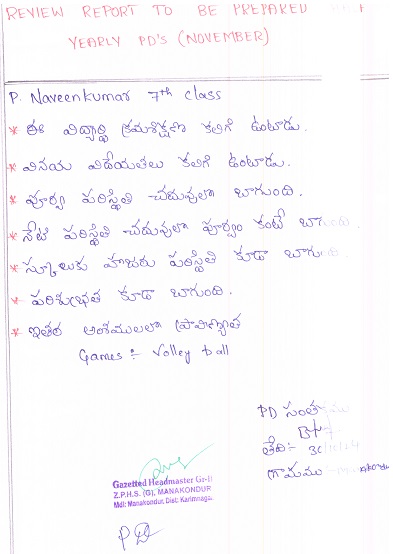 REVIEW REPORT TO BE PREPARED
YEARLY PD'S (NOVEMBER)
P. Naveenkumar 7th class
* ఈ విద్యార్థి క్రమశిక్షణ కలిగి ఉంటాడు.
* వినయ విధేయతలు కలిగి ఉంటాడు.
* పూర్వ పరిస్థితి చదువులో బాగుంది.
* నేటి పరిస్థితి చదువులో పూర్వం కంటే బాగుంది
* స్కూలుకు హాజరు పరిస్థితి కూడా బాగుంది
* పరిశుభ్రత కూడా బాగుంది.
* ఇతర అంశములలో ప్రావీణ్యత
Games :- Volley ball
PD సంతకము
తేది:-
గ్రామము
Gazetted Headmaster Gr-II
Z.P.H.S. (G), MANAKONDUR
Mdl: Manakondur, Dist: Karimnagar.